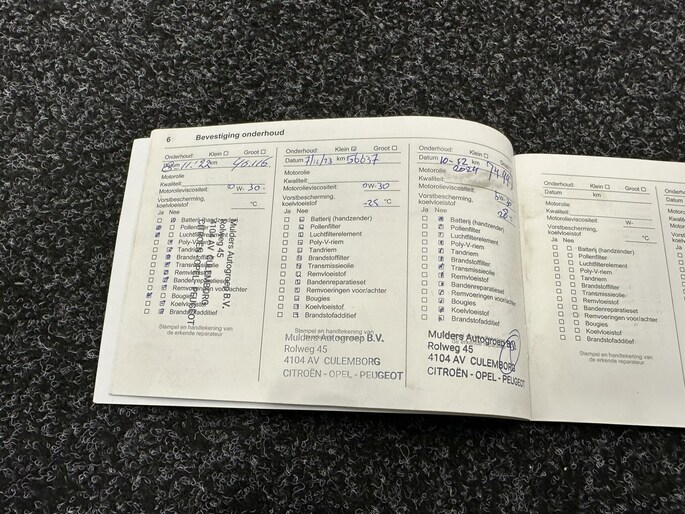 6 Bevestiging onderhoud
Onderhoud: Klein Groot
11.'22 km 40.116
Motorolie
Kwaliteit:
Motorolieviscositeit: 0 W- 30
Vorstbescherming,
koelvloeistof °C
Ja Nee
Batterij (handzender)
Pollenfilter
Luchtfilterelement
Poly-V-riem
Tandriem
Brandstoffilter
Transmissieolie
Remvloeistof
Bandenreparatieset
Remvoeringen voor/achter
Bougies
Koelvloeistof
Brandstofadditief
Stempel en handtekening van
de erkende reparateur
Mulders Autogroep B.V.
Rolweg 45
4104 AV CULEMBORG
CITROËN - OPEL - PEUGEOT
Onderhoud: Klein Groot
Datum 7/11/23 km 56637
Motorolie
Kwaliteit:
Motorolieviscositeit: 0W-30
Vorstbescherming,
koelvloeistof -25 °C
Ja Nee
Batterij (handzender)
Pollenfilter
Luchtfilterelement
Poly-V-riem
Tandriem
Brandstoffilter
Transmissieolie
Remvloeistof
Bandenreparatieset
Remvoeringen voor/achter
Bougies
Koelvloeistof
Brandstofadditief
Stempel en handtekening van
Mulders Autogroep B.V.
Rolweg 45
4104 AV CULEMBORG
CITROËN - OPEL - PEUGEOT
Onderhoud: Klein Groot
Datum 10-12 km
2024
Motorolie
Kwaliteit:
Motorolieviscositeit:
Vorstbescherming,
koelvloeistof
Ja Nee
Batterij (handzender)
Pollenfilter
Luchtfilterelement
Poly-V-riem
Tandriem
Brandstoffilter
Transmissieolie
Remvloeistof
Bandenreparatieset
Remvoeringen voor/achter
Bougies
Koelvloeistof
Brandstofadditief
Stempel en handtekening van
Mulders Autogroep
Rolweg 45
4104 AV CULEMBORG
CITROËN - OPEL - PEUGEOT
Onderhoud: Klein Groot
Datum km
Motorolie
Kwaliteit:
Motorolieviscositeit: W-
Vorstbescherming,
koelvloeistof °C
Ja Nee
Batterij (handzender)
Pollenfilter
Luchtfilterelement
Poly-V-riem
Tandriem
Brandstoffilter
Transmissieolie
Remvloeistof
Bandenreparatieset
Remvoeringen voor/achter
Bougies
Koelvloeistof
Brandstofadditief
Stempel en handtekening van
de erkende reparateur